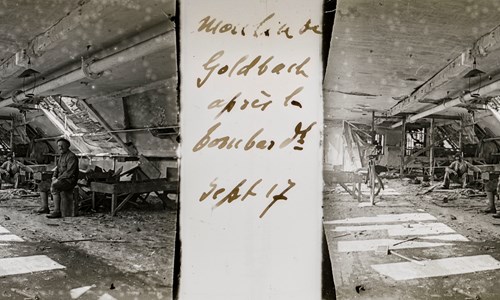 Moulin de
Goldbach
après le
bombardt
Sept 17